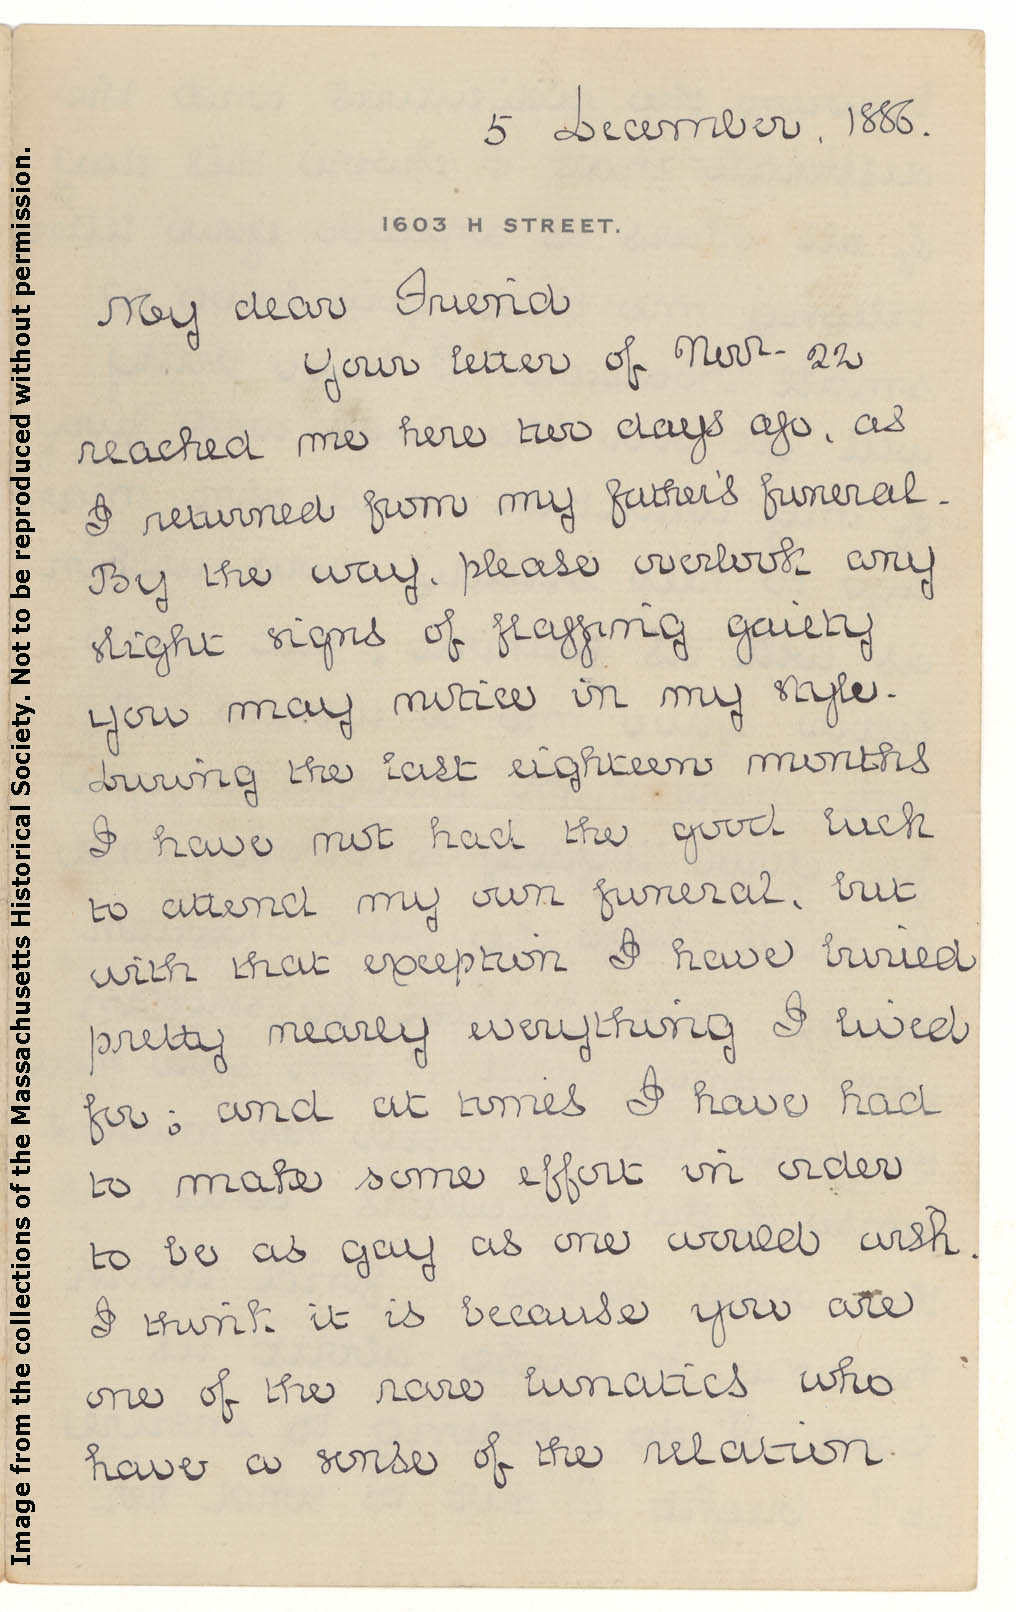 5 December, 1886.
1603 H STREET.
My dear Friend
Your letter of Nov. 22
reached me here two days ago, as
I returned from my father's funeral.
By the way, please overlook any
slight signs of flagging gaiety
you may notice in my style.
During the last eighteen months
I have not had the good luck
to attend my own funeral, but
with that exception I have buried
pretty nearly everything I lived
for; and at times I have had
to make some effort in order
to be as gay as one would wish.
I think it is because you are
one of the rare lunatics who
have a sense of the relation
Image from the collections of the Massachusetts Historical Society. Not to be reproduced without permission.